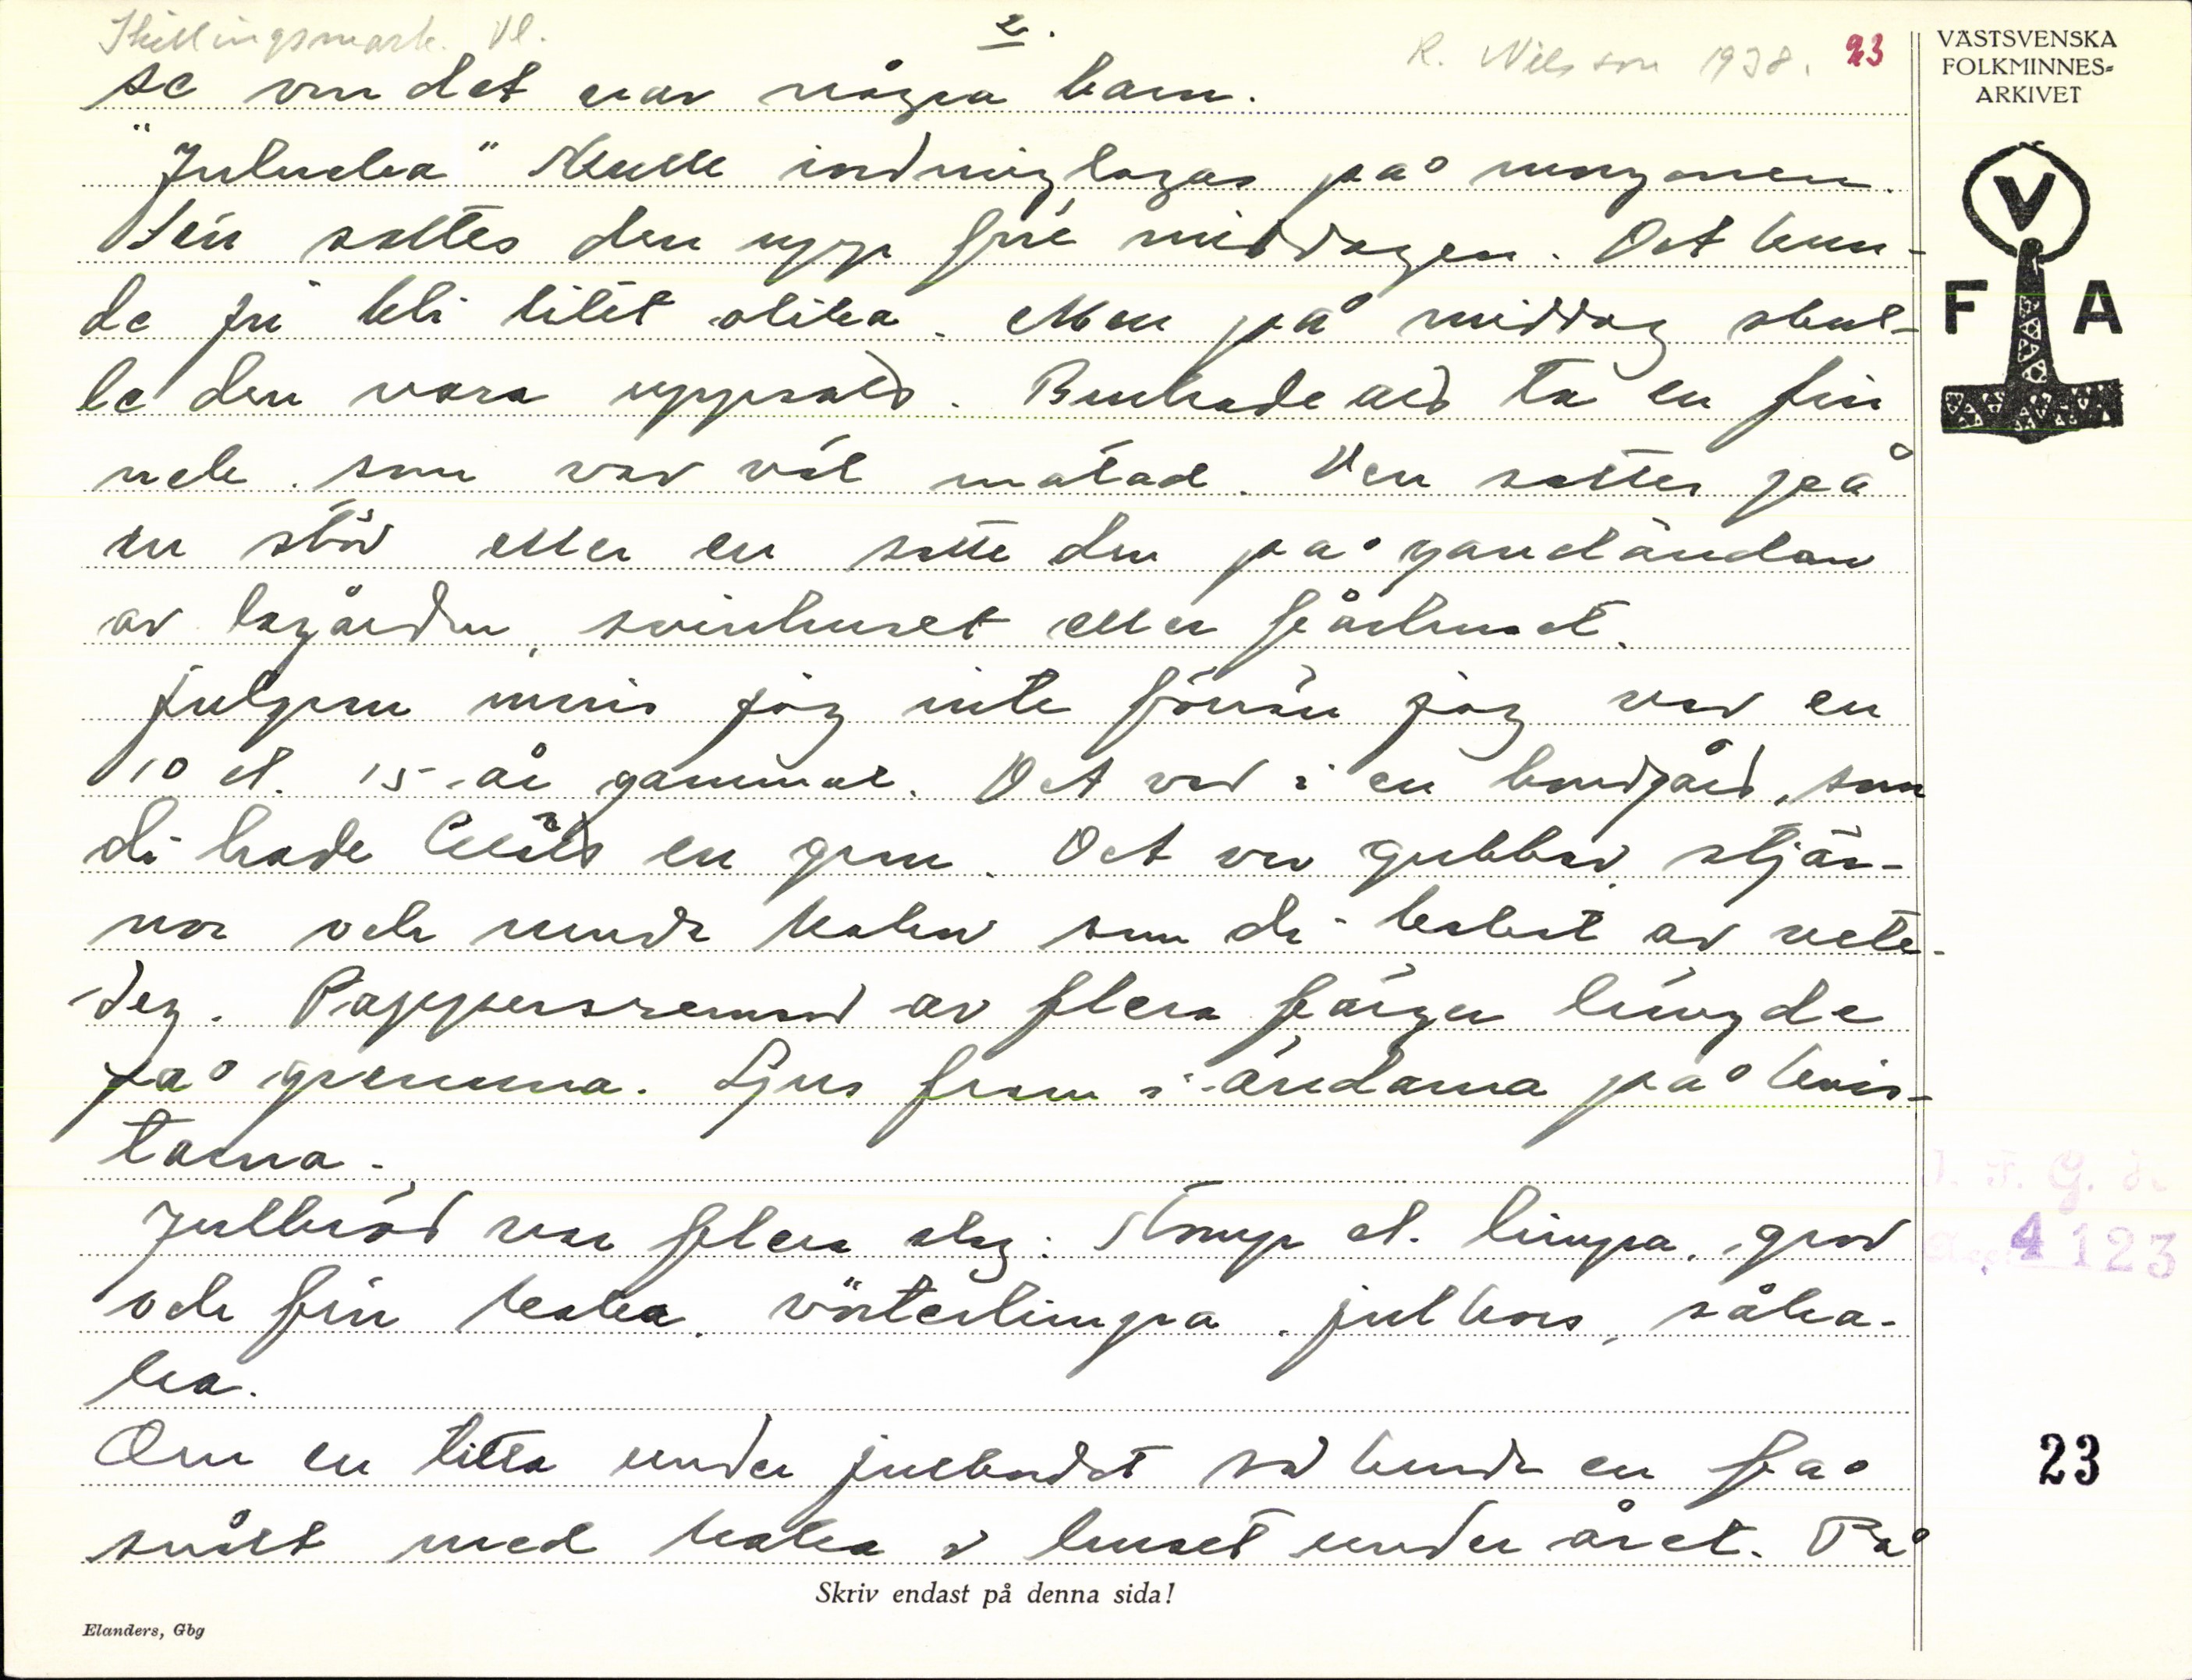 Skillingsmark. Vl.
2.
R. Nilsson 1938. 23
VÄSTSVENSKA
FOLKMINNES-
ARKIVET
V
F A
se om det var några barn.
"Juluka" skulle iordninglagas på morgonen.
Sen sattes den upp före middagen. Det kun-
de ju bli litet olika. Men på middag skul-
le den vara uppsatt. Brukade att ta en fin
nek som var väl matad. Den sattes på
en stör eller en satte den på gaveländan
av lagården, svinhuset eller fårhuset.
Julgran minns jag inte förrän jag var en
10 el. 15 år gammal. Det var i en bondgård, som
di hade klätt en gran. Det var gubbar, stjär-
nor och runda kakor som di bakat av vete-
deg. Pappersremsor av flera färger hängde
på grenarna. Ljus fram i ändarna på kvis-
tarna.
Julbröd var flera slag: stomp el. limpa, grov
och fin kaka, vörterlimpa, julkors, såka-
ka.
Om en titta under julbordet så kunde en få
smått med kaka i huset under året. På
4123
23
Skriv endast på denna sida!
Elanders, Gbg